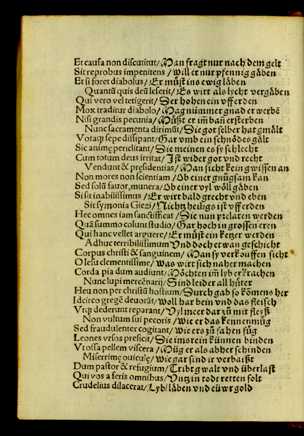 Et causa non discutitur/ Man fragt nur nach dem gelt
Sit reprobus impenitens/ will er nur pfennig gäben
Et si foret diabolus/ Er müst ins ewig läben
Quantū quis deū leserit/ Es wirt als lycht vergäben
Qui vero vel tetigerit/ Der hohen ein pfferden
Mox traditur diabolo/ Mag nümmer gnad erwerbē
Nisi grandis pecunia/ Müßt er im ban ersterben
Nunc sacramenta dirimūt/ Die got selber hat gmält
Votaq̃ sepe dissipant/ Gar vmb ein schnödes gält
Sic animę periclitant/ Sie meinen es sy schlecht
Cum totum deus irritat/ Ist wider got vnd recht
Vendunt & presidentias/ Man sicht kein gwissen an
Non mores non scientiam/ Ob einer gnūgsam kan
Sed solū favor, munera/ Ob einer vyl wöll gäben
Si sit inabilissimus/ Er wirt bald grecht vnd eben
Sit symonia Giezi/ Nicht heiligs ist vfferden
Hec omnes iam sanctificat/ Die nun pxlaten werden
Quā summo colunt studio/ Gar hoch in grossen eren
Qui hanc vellet arguere/ Er müst ein ketzer werden
Adhuc terribilissimum/ Vnd doch etwan geschicht
Corpus christi & sanguinem/ Man sy verkouffen sicht
O Jesu clementissime/ Was wirt sich naher machen
Corda pia dum audiunt/ Möchten im lyb erkrachen
Nunc lupi mercenarij/ Sind leider all hüter
Heu non per christi hostium/ Durch gab so kömens her
Idcirco gregē deuorāt/ woll har bein vnd das fleisch
Vtq̃ dederunt reparant/ Vyl meer dar zū mit fleiß
Non vultum sui pecoris/ Wie er das kennen müg
Sed fraudulenter cogitant/ wie ers zū saden füg
Leones versos presicit/ Die im orein künnen binden
Vt ossa pellem viscera/ Müg er als abher schinden
Miserrime ouicule/ Wie gar sind ir verhaißt
Dum pastor & refugium/ Tribt gwalt vnd überlast
Qui vos a feris omnibus/ Vntz in todt retten solt
Crudelius dilacerat/ Lyb/ läben vnd eüwr gold